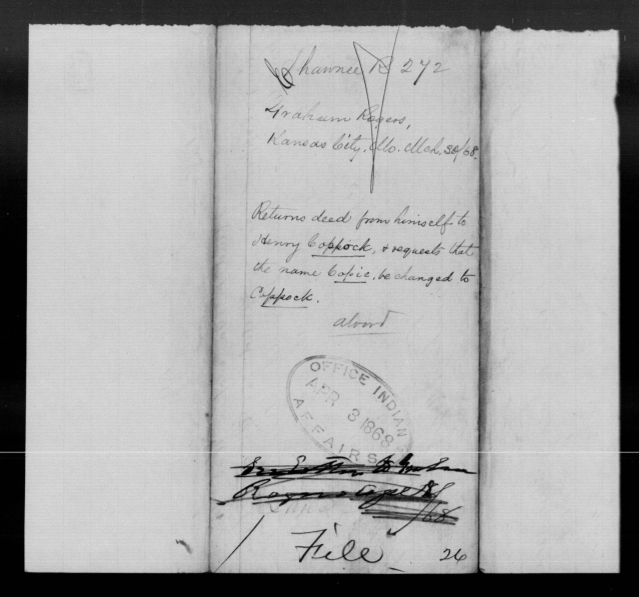 Shawnee R 272
Graham Rogers,
Kansas City, Mo. Mch. 30/68.
Returns deed from himself to
Henry Coppock, & requests that
the name Copic, be changed to
Coppock.
OFFICE INDIAN
APR 3 1868
AFFAIRS
Rogers
/68
File
26